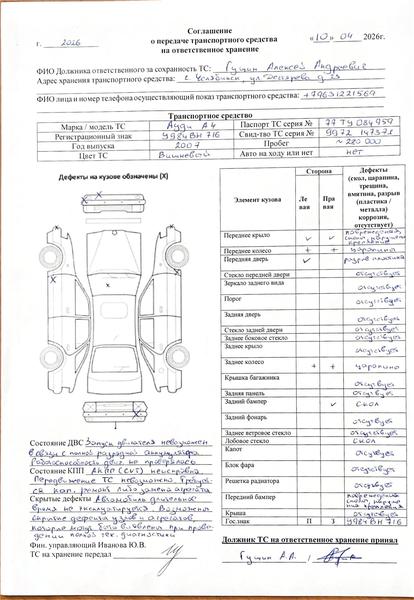 Соглашение
о передаче транспортного средства
на ответственное хранение
г. 2026 «10» 04 2026г.
ФИО Должника ответственного за сохранность ТС: Гущин Алексей Андреевич
Адрес хранения транспортного средства: г. Челябинск, ул.
ФИО лица и номер телефона осуществляющий показ транспортного средства: +79631221569
Транспортное средство
Марка / модель ТС Ауди А4 Паспорт ТС серия № 77 ТУ 084959
Регистрационный знак У984ВН 716 Свид-тво ТС серия № 9972 147571
Год выпуска 2007 Пробег ~ 280 000
Цвет ТС Вишневый Авто на ходу или нет нет
Дефекты на кузове обозначены (X)
Элемент кузова Сторона Дефекты (скол, царапина, трещина, вмятина, разрыв (пластика / металла) коррозия, отсутствует)
Левая Правая
Переднее крыло ✓ ✓
Переднее колесо + + царапина
Передняя дверь ✓ разрыв пластика
Стекло передней двери отсутствует
Зеркало заднего вида отсутствует
Порог отсутствует
Задняя дверь отсутствует
Стекло задней двери отсутствует
Заднее боковое стекло отсутствует
Заднее крыло отсутствует
Заднее колесо + + царапина
Крышка багажника отсутствует
Задняя панель отсутствует
Задний бампер ✓ скол
Задний фонарь отсутствует
Заднее ветровое стекло отсутствует
Лобовое стекло скол
Капот отсутствует
Блок фара отсутствует
Решетка радиатора отсутствует
Передний бампер
Крыша отсутствует
Гос.знак П З У984ВН 716
Состояние ДВС Запуск двигателя невозможен
в связи с полной разрядкой аккумулятора
Работоспособность двиг. не проверялась
Состояние КПП АКПП (CVT) неисправна
Передвижение ТС невозможно. Требуется
кап. ремонт либо замена агрегата
Скрытые дефекты Автомобиль длительное
время не эксплуатируется. Возможны
скрытые дефекты узлов и агрегатов,
которые могут быть выявлены при прове-
дении полной тех. диагностики
Фин. управляющий Иванова Ю.В.
ТС на хранение передал
Должник ТС на ответственное хранение принял
Гущин А.А. /